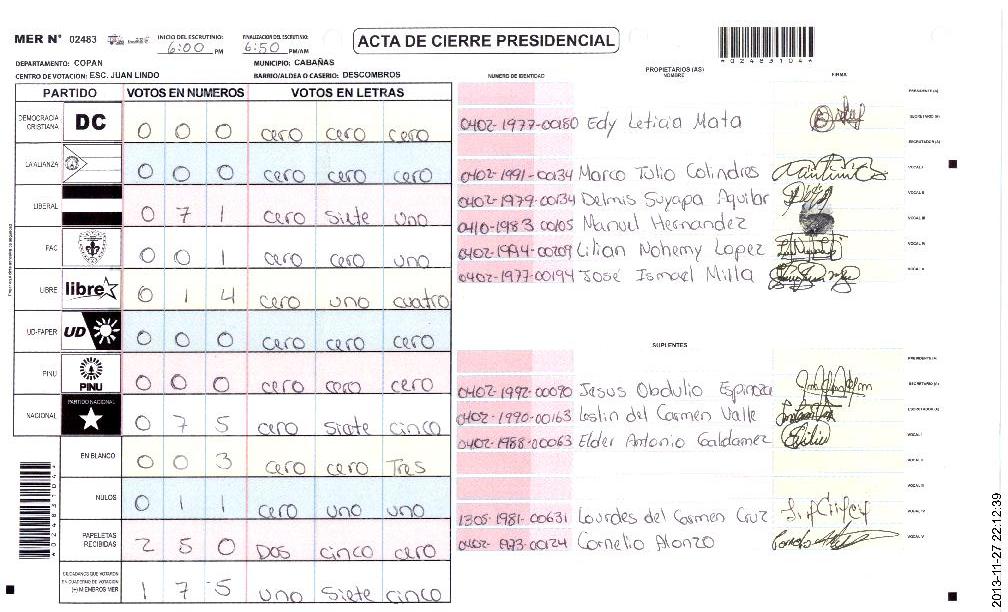 MER N° 02483
INICIO DEL ESCRUTINIO: 6:00 PM
FINALIZACION DEL ESCRUTINIO: 6:50 PM/AM
ACTA DE CIERRE PRESIDENCIAL
A0248310 44
DEPARTAMENTO: COPAN MUNICIPIO: CABAÑAS
CENTRO DE VOTACION: ESC. JUAN LINDO BARRIO/ALDEA O CASERIO: DESCOMBROS
PARTIDO VOTOS EN NUMEROS VOTOS EN LETRAS
DEMOCRACIA CRISTIANA DC 0 0 0 cero cero cero
LA ALIANZA 0 0 0 cero cero cero
LIBERAL 0 7 1 cero Siete uno
FAC 0 0 1 cero cero uno
LIBRE libre 0 1 4 cero uno cuatro
UD-FAPER UD 0 0 0 cero cero cero
PINU PINU 0 0 0 cero cero cero
NACIONAL PARTIDO NACIONAL 0 7 5 cero Siete cinco
EN BLANCO 0 0 3 cero cero Tres
NULOS 0 1 1 cero uno uno
PAPELETAS RECIBIDAS 2 5 0 Dos cinco cero
CIUDADANOS QUE VOTARON EN CUADERNO DE VOTACION (+) MIEMBROS MER 1 7 5 uno Siete cinco
NÚMERO DE IDENTIDAD PROPIETARIOS (AS) NOMBRE FIRMA
PRESIDENTE (A)
0402-1977-00180 Edy Leticia Mata SECRETARIO (A)
ESCRUTADOR (A)
0402-1991-00134 Marco Tulio Colindres VOCAL I
0402-1979-00134 Delmis Suyapa Aguilar VOCAL II
0410-1983 00105 Manuel Hernandez VOCAL III
0402-1994-00209 Lilian Nohemy Lopez VOCAL IV
0402-1977-00194 José Ismael Milla VOCAL V
SUPLENTES
PRESIDENTE (A)
0402-1992-00090 Jesus Obdulio Espinoza SECRETARIO (A)
0402-1990-00163 Leslin del Carmen Valle ESCRUTADOR (A)
0402-1988-00063 Elder Antonio Galdamez VOCAL I
VOCAL II
VOCAL III
1305-1981-00631 Lourdes del Carmen Cruz VOCAL IV
0402-1973-00124 Cornelio Alonzo VOCAL V
2013-11-27 22:12:39